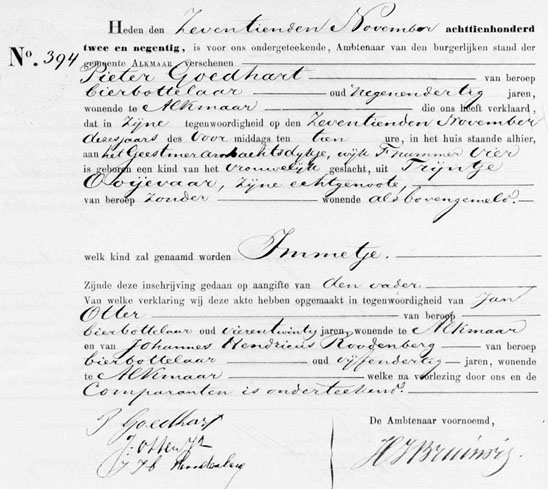 Heden den Zeventienden November achttienhonderd
No. 394 twee en negentig, is voor ons ondergeteekende, Ambtenaar van den burgerlijken stand der
gemeente ALKMAAR verschenen
Pieter Goedhart van beroep
bierbottelaar oud negenendertig jaren,
wonende te Alkmaar die ons heeft verklaard,
dat in Zijne tegenwoordigheid op den Zeventienden November
deezes jaars des Voor middags ten tien ure, in het huis staande alhier,
aan het Geestmerambachtsdykje, wijk F nummer vier
is geboren een kind van het vrouwelyk geslacht, uit Tryntje
Ooijevaar, Zijne echtgenoote,
van beroep Zonder wonende als bovengemeld.
welk kind zal genaamd worden Immetje.
Zijnde deze inschrijving gedaan op aangifte van den vader.
Van welke verklaring wij deze akte hebben opgemaakt in tegenwoordigheid van Jan
Otter van beroep
bierbottelaar oud vierentwintig jaren, wonende te Alkmaar
en van Johannes Hendricus Roodenberg van beroep
bierbottelaar oud vijfendertig jaren, wonende
te Alkmaar welke na voorlezing door ons en de
Comparanten is onderteekend.
P Goedhart
J. Otter Jz
J H Roodenberg
De Ambtenaar voornoemd,
H J Bruinvis